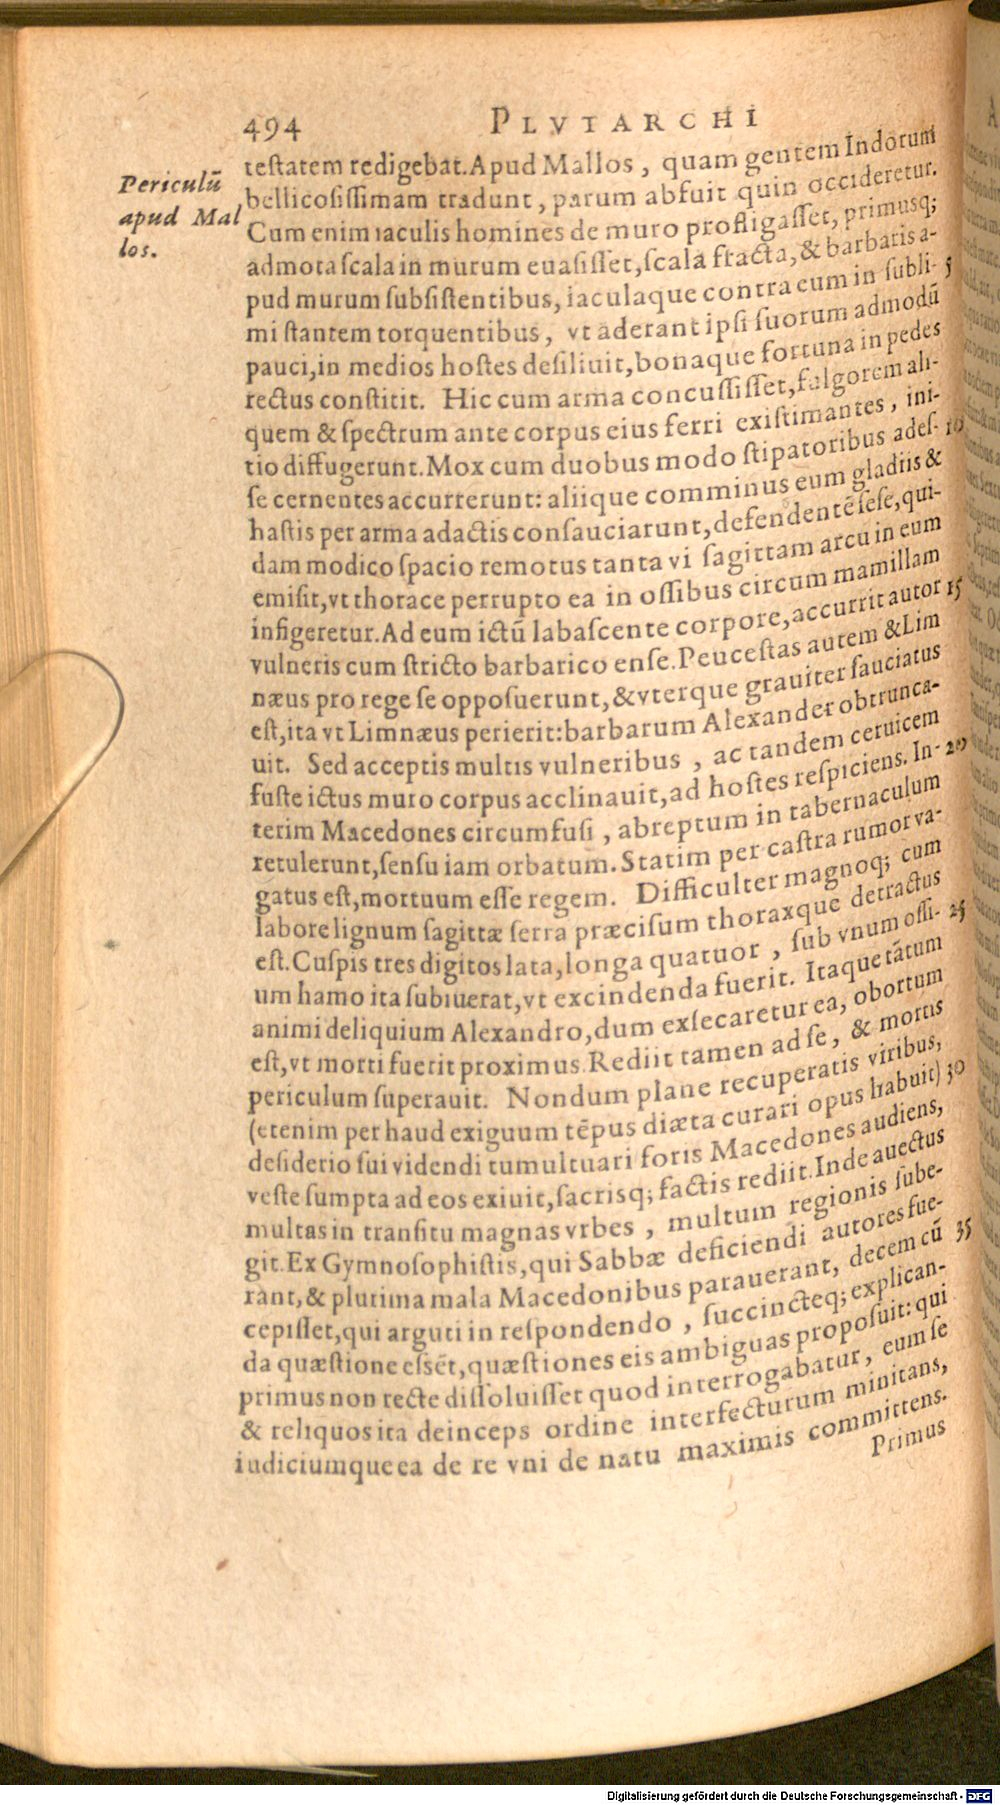 494 PLVTARCHI
Periculū
apud Mal
los.
testatem redigebat. Apud Mallos, quam gentem Indorum
bellicosissimam tradunt, parum abfuit quin occideretur.
Cum enim iaculis homines de muro profligasset, primusq;
admota scala in murum euasisset, scala fracta, & barbaris a-
pud murum subsistentibus, iaculaque contra eum in subli- 5
mi stantem torquentibus, vt aderant ipsi suorum admodū
pauci, in medios hostes desiliuit, bonaque fortuna in pedes
rectus constitit. Hic cum arma concussisset, fulgorem ali-
quem & spectrum ante corpus eius ferri existimantes, ini-
tio diffugerunt. Mox cum duobus modo stipatoribus ades- 10
se cernentes accurrerunt: aliique comminus eum gladiis &
hastis per arma adactis consauciarunt, defendentē sese, qui-
dam modico spacio remotus tanta vi sagittam arcu in eum
emisit, vt thorace perrupto ea in ossibus circum mamillam
infigeretur. Ad eum ictū labascente corpore, accurrit autor 15
vulneris cum stricto barbarico ense. Peucestas autem & Lim
næus pro rege se opposuerunt, & vterque grauiter sauciatus
est, ita vt Limnæus perierit: barbarum Alexander obtrunca-
uit. Sed acceptis multis vulneribus, ac tandem ceruicem
fuste ictus muro corpus acclinauit, ad hostes respiciens. In- 20
terim Macedones circumfusi, abreptum in tabernaculum
retulerunt, sensu iam orbatum. Statim per castra rumor va-
gatus est, mortuum esse regem. Difficulter magnoq; cum
labore lignum sagittæ serra præcisum thoraxque detractus
est. Cuspis tres digitos lata, longa quatuor, sub vnum ossi- 25
um hamo ita subiuerat, vt excindenda fuerit. Itaque tātum
animi deliquium Alexandro, dum exsecaretur ea, obortum
est, vt morti fuerit proximus. Rediit tamen ad se, & mortis
periculum superauit. Nondum plane recuperatis viribus,
(etenim per haud exiguum tēpus diæta curari opus habuit) 30
desiderio sui videndi tumultuari foris Macedones audiens,
veste sumpta ad eos exiuit, sacrisq; factis rediit. Inde auectus
multas in transitu magnas vrbes, multum regionis sube-
git. Ex Gymnosophistis, qui Sabbæ deficiendi autores fue-
rant, & plurima mala Macedonibus parauerant, decem cū 35
cepisset, qui arguti in respondendo, succincteq; explican-
da quæstione essēt, quæstiones eis ambiguas proposuit: qui
primus non recte dissoluisset quod interrogabatur, eum se
& reliquos ita deinceps ordine interfecturum minitans,
iudiciumque ea de re vni de natu maximis committens.
Primus
Digitalisierung gefördert durch die Deutsche Forschungsgemeinschaft - DFG